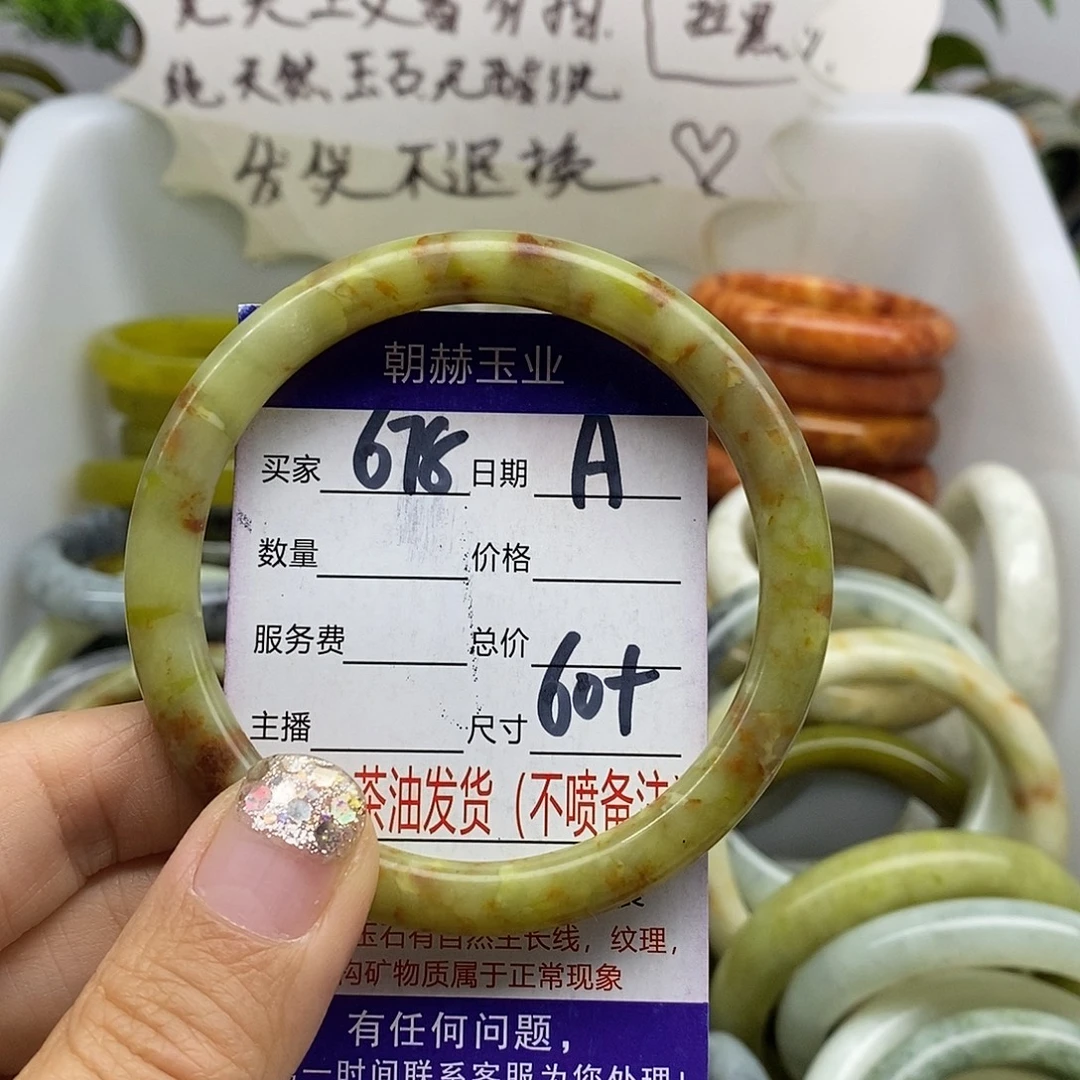 纯天然玉石无酸洗
发货不退换
拉黑
朝赫玉业
买家 678 日期 A
数量 价格
服务费 总价
主播 尺寸 60+
茶油发货（不喷备注
玉石有自然生长线，纹理，
构矿物质属于正常现象
有任何问题，
一时间联系客服为您处理！